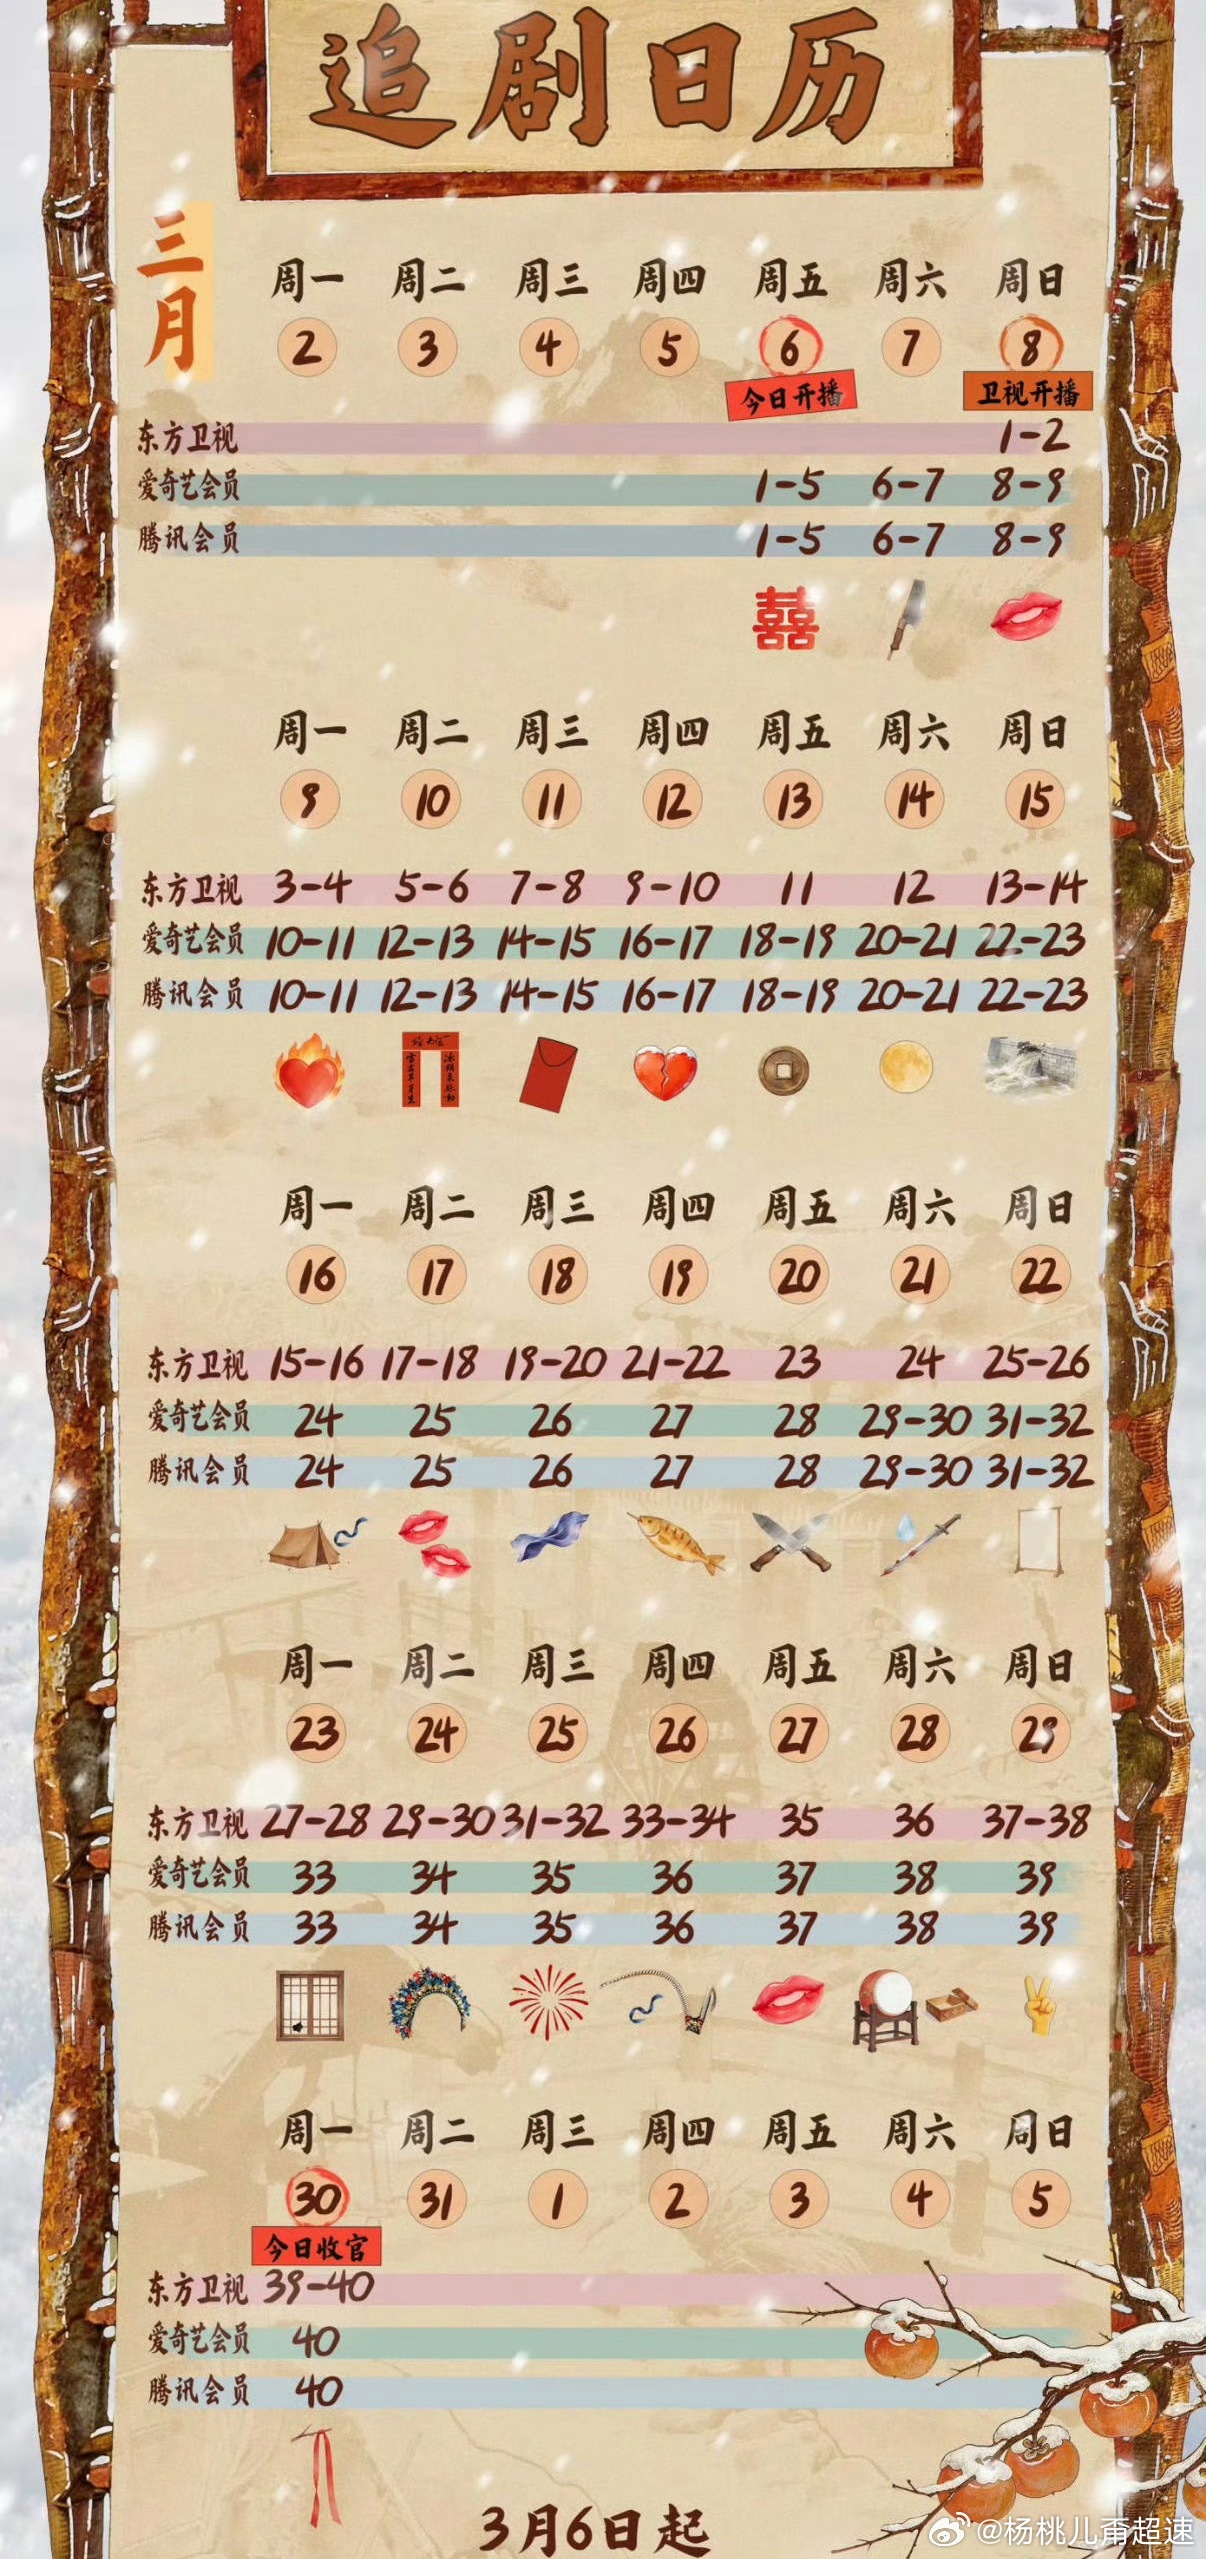 追剧日历
三月
周一 周二 周三 周四 周五 周六 周日
2 3 4 5 6 7 8
今日开播 卫视开播
东方卫视 1-2
爱奇艺会员 1-5 6-7 8-9
腾讯会员 1-5 6-7 8-9
囍
周一 周二 周三 周四 周五 周六 周日
9 10 11 12 13 14 15
东方卫视 3-4 5-6 7-8 9-10 11 12 13-14
爱奇艺会员 10-11 12-13 14-15 16-17 18-19 20-21 22-23
腾讯会员 10-11 12-13 14-15 16-17 18-19 20-21 22-23
周一 周二 周三 周四 周五 周六 周日
16 17 18 19 20 21 22
东方卫视 15-16 17-18 19-20 21-22 23 24 25-26
爱奇艺会员 24 25 26 27 28 29-30 31-32
腾讯会员 24 25 26 27 28 29-30 31-32
周一 周二 周三 周四 周五 周六 周日
23 24 25 26 27 28 29
东方卫视 27-28 29-30 31-32 33-34 35 36 37-38
爱奇艺会员 33 34 35 36 37 38 39
腾讯会员 33 34 35 36 37 38 39
周一 周二 周三 周四 周五 周六 周日
30 31 1 2 3 4 5
今日收官
东方卫视 39-40
爱奇艺会员 40
腾讯会员 40
3月6日起
@杨桃儿甭超速